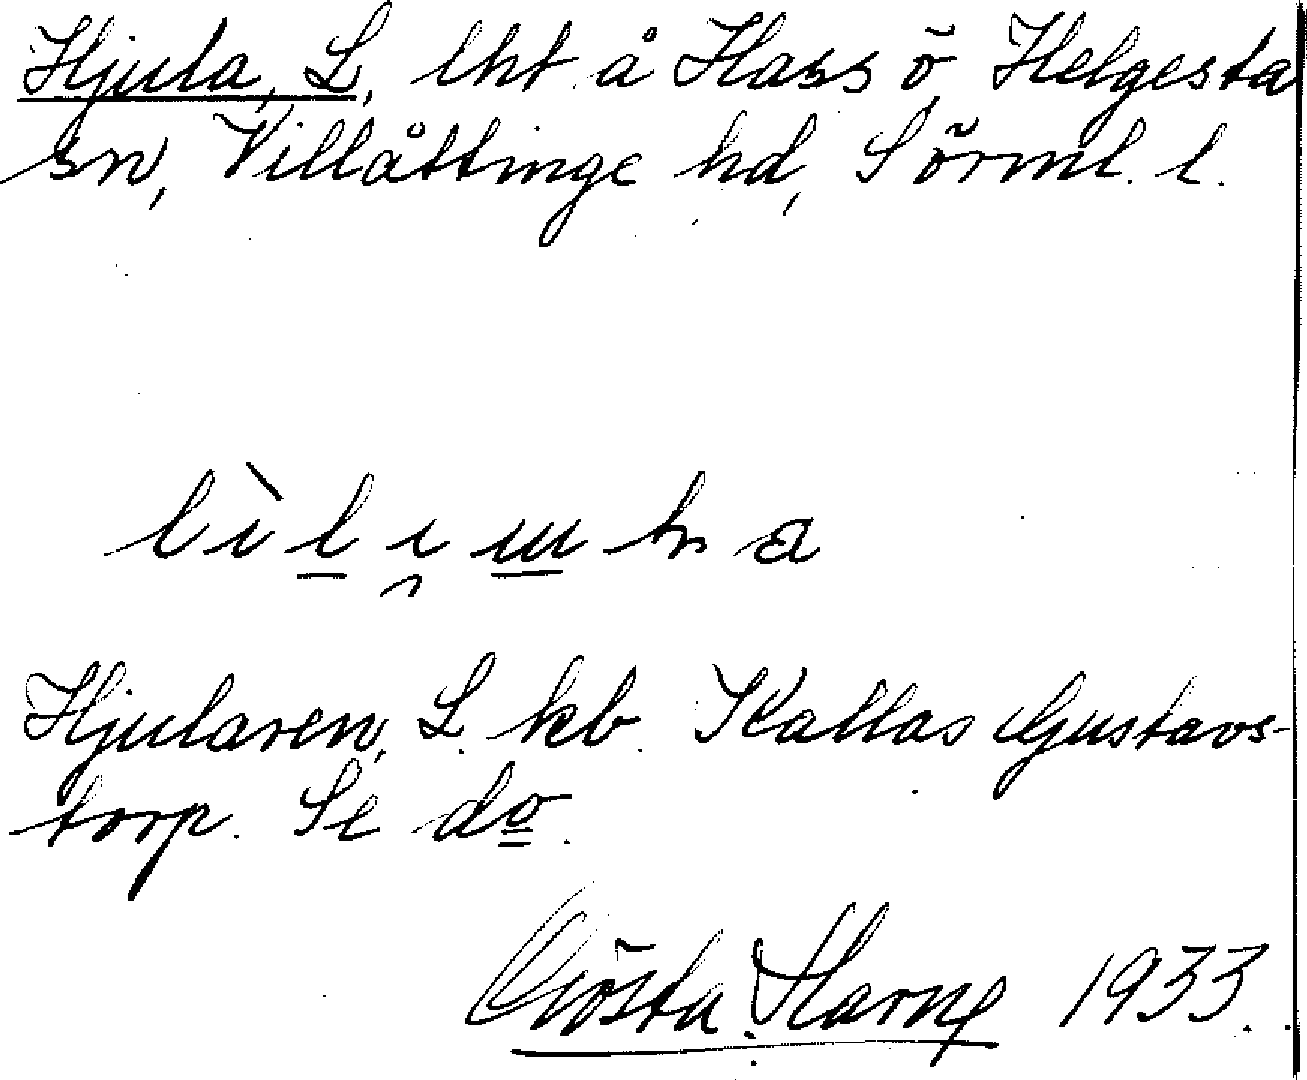 Hjula, L, lht å Hass ö Helgesta
sn, Villåttinge hd, Sörml. l.
Hjularen, L. kb. Kallas Gustavs-
torp. Se do.
Gösta Harne 1933.